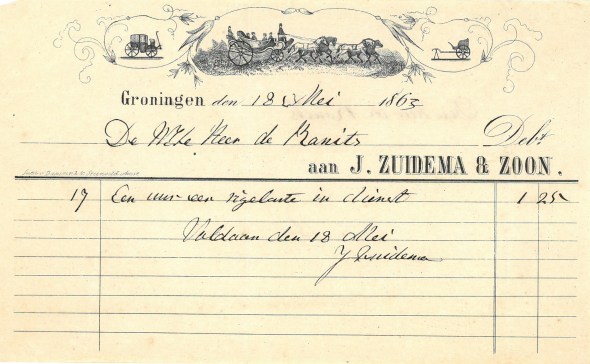 Groningen den 18 Mei 1863
De WEle Heer de Ranitz Debt
aan J. ZUIDEMA & ZOON.
17 Een uur een vigelante in dienst 1 25
Voldaan den 18 Mei
J Zuidema